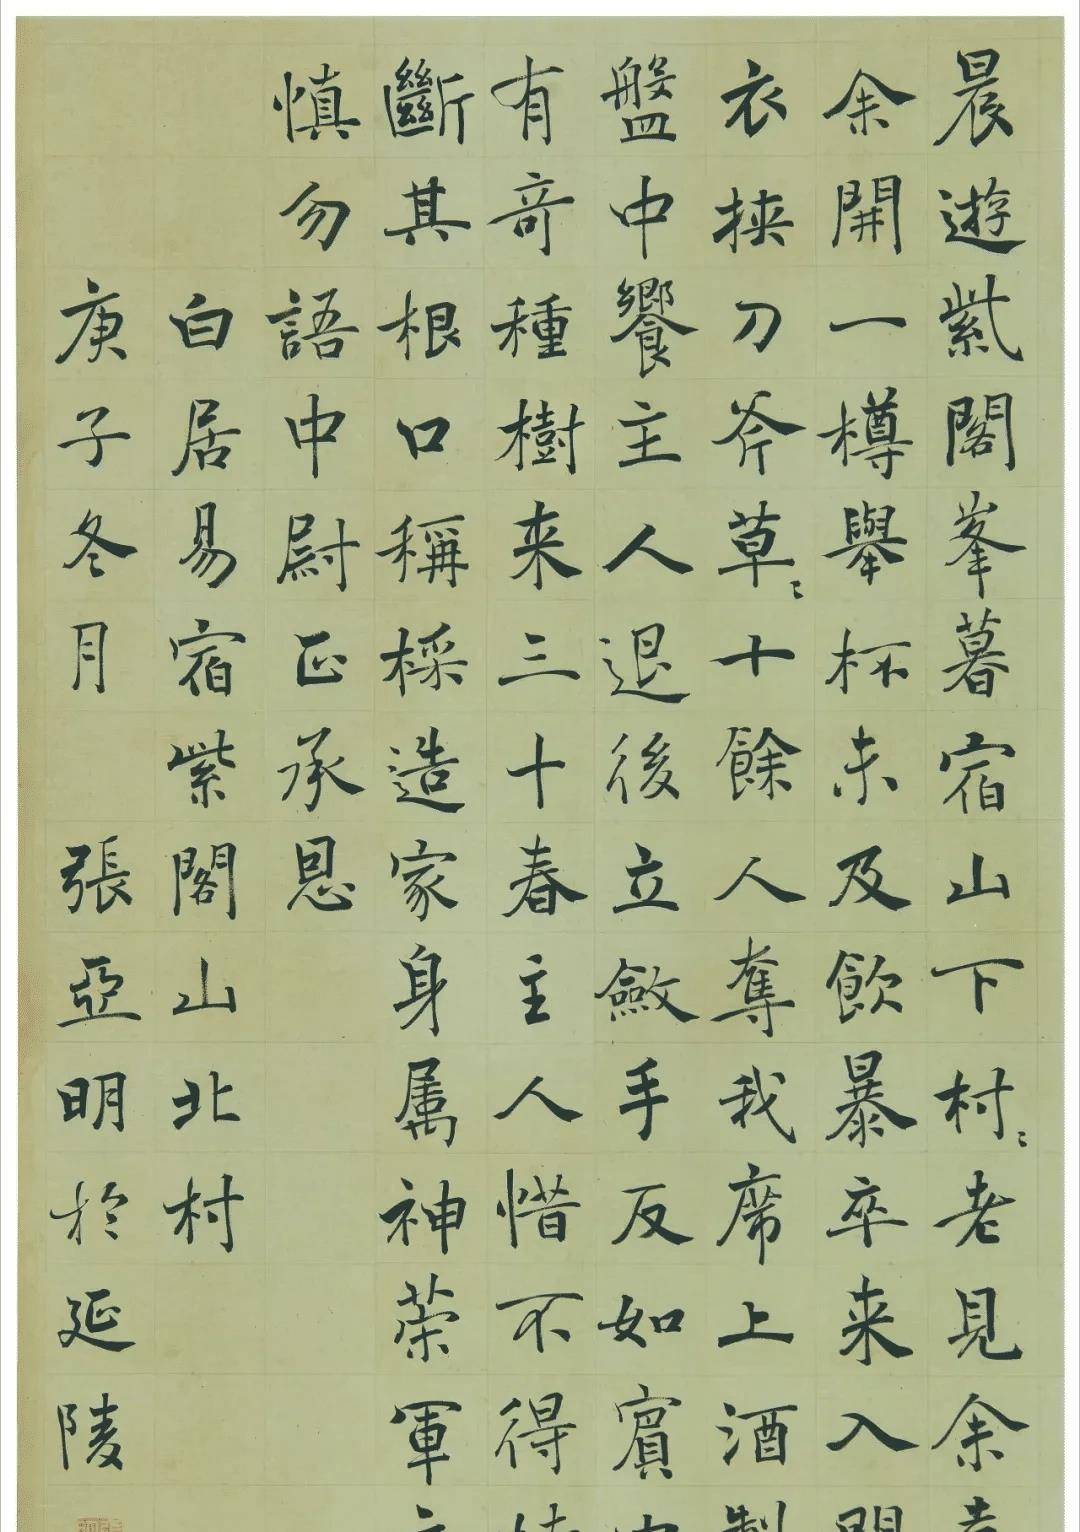 晨遊紫閣峯暮宿山下村〻老見余
余開一樽舉杯未及飲暴卒来入
衣挟刀斧草〻十餘人奪我席上酒
盤中饗主人退後立斂手反如賓
有奇種樹来三十春主人惜不得
斷其根口稱採造家身属神策軍
慎勿語中尉正承恩
白居易宿紫閣山北村
庚子冬月 張亞明於延陵